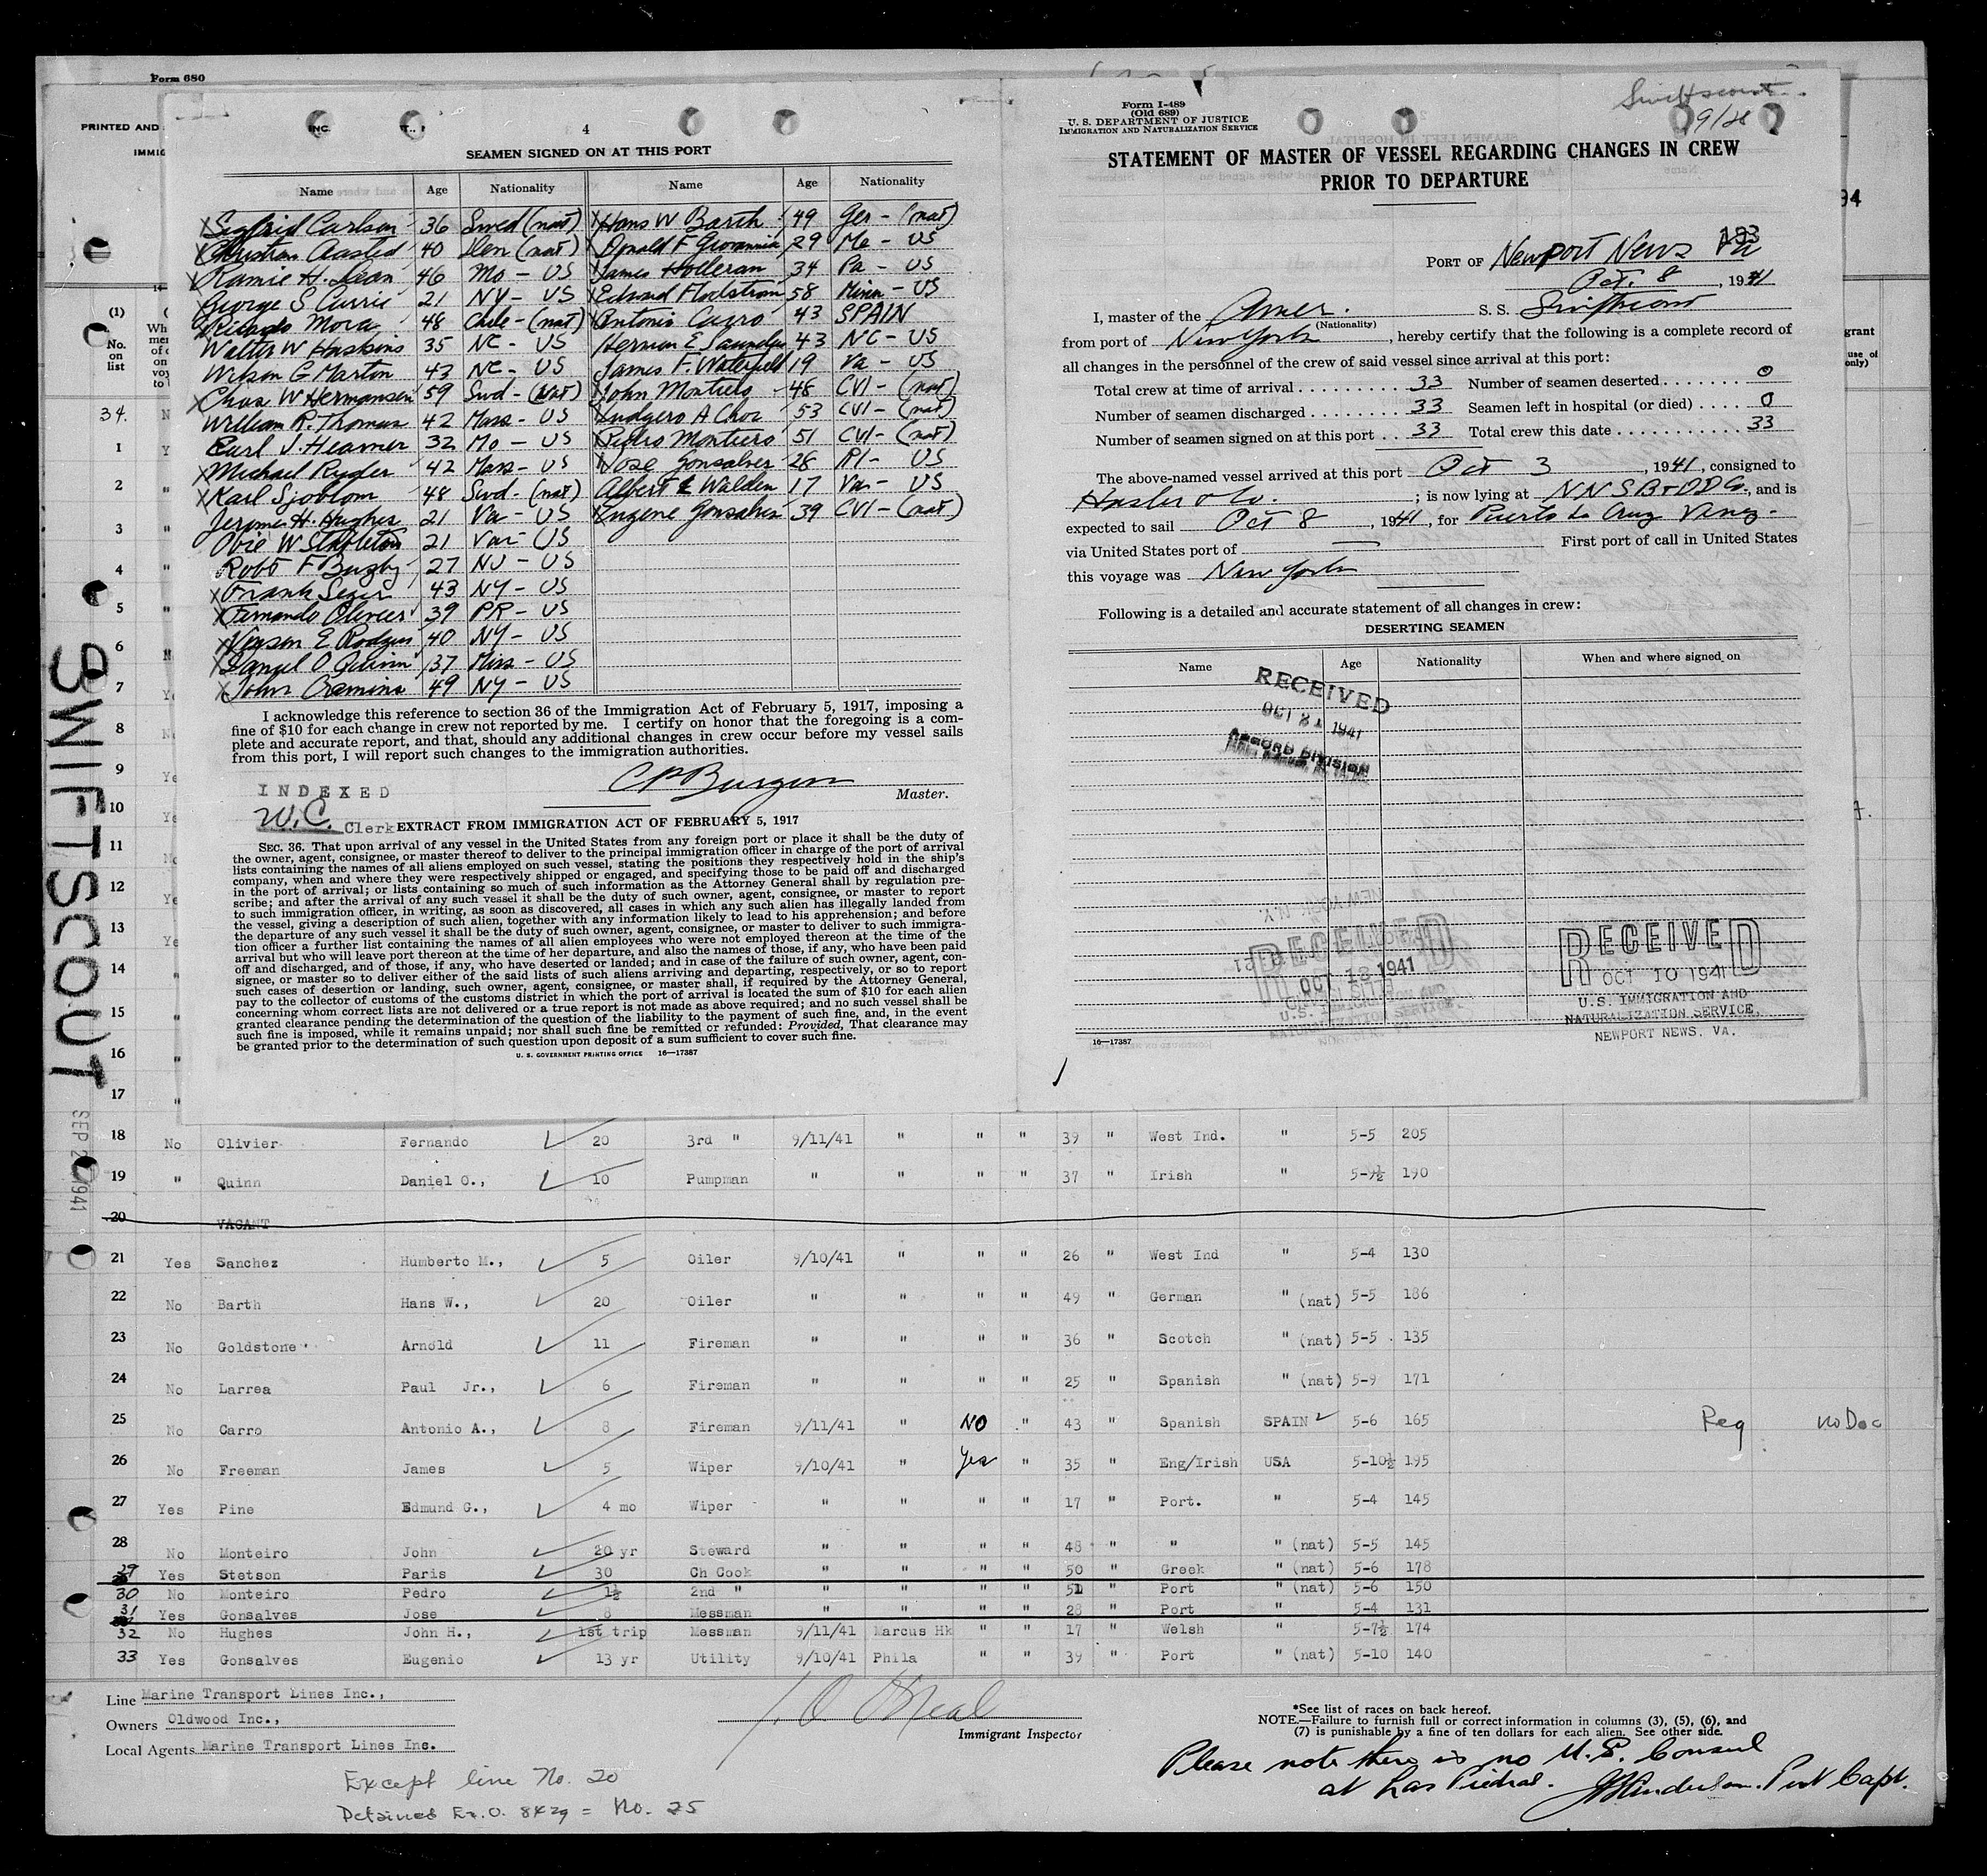 Form 680
PRINTED AND
IMMIG
INC.
4
SEAMEN SIGNED ON AT THIS PORT
Name Age Nationality Name Age Nationality
X Sigfrid Carlson 36 Swed (nat) X Hans W Barth 49 Ger - (nat)
X Christian Aasted 40 Den (nat) Donald F Giovannia 29 Me - US
X Ramie H. Dean 46 Mo - US James Holleran 34 Pa - US
George S Currie 21 NY - US X Edward Flodstrom 58 Minn - US
Ricardo Mora 48 Chile - (nat) X Antonio Carro 43 SPAIN
Walter W Haskins 35 NC - US Herman E Saunders 43 NC - US
Wilson G Marton 43 NC - US James F. Waterfield 19 Va - US
X Chas W Hermansen 59 Swd - (nat) X John Montiero 48 CVI - (nat)
William R. Thomas 42 Mass - US Ludgero A Choc 53 CVI - (nat)
Earl J. Heamer 32 Mo - US Pedro Montiero 51 CVI - (nat)
X Michael Ryder 42 Mass - US Jose Gonsalves 28 RI - US
X Karl Sjoblom 48 Swd - (nat) Albert L Walden 17 Va - US
Jerome H. Hughes 21 Va - US Eugene Gonsalves 39 CVI - (nat)
Obie W Stapleton 21 Va - US
Robt F Buzby 27 NJ - US
X Frank Seger 43 NY - US
X Fernando Olivier 39 PR - US
X Vinson E Rodgers 40 NY - US
X Daniel O Quinn 37 Miss - US
X John Cramins 49 NY - US
I acknowledge this reference to section 36 of the Immigration Act of February 5, 1917, imposing a
fine of $10 for each change in crew not reported by me. I certify on honor that the foregoing is a com-
plete and accurate report, and that, should any additional changes in crew occur before my vessel sails
from this port, I will report such changes to the immigration authorities.
INDEXED
W.C. Clerk
Master.
EXTRACT FROM IMMIGRATION ACT OF FEBRUARY 5, 1917
SEC. 36. That upon arrival of any vessel in the United States from any foreign port or place it shall be the duty of
the owner, agent, consignee, or master thereof to deliver to the principal immigration officer in charge of the port of arrival
lists containing the names of all aliens employed on such vessel, stating the positions they respectively hold in the ship's
company, when and where they were respectively shipped or engaged, and specifying those to be paid off and discharged
in the port of arrival; or lists containing so much of such information as the Attorney General shall by regulation pre-
scribe; and after the arrival of any such vessel it shall be the duty of such owner, agent, consignee, or master to report
to such immigration officer, in writing, as soon as discovered, all cases in which any such alien has illegally landed from
the vessel, giving a description of such alien, together with any information likely to lead to his apprehension; and before
the departure of any such vessel it shall be the duty of such owner, agent, consignee, or master to deliver to such immigra-
tion officer a further list containing the names of all alien employees who were not employed thereon at the time of the
arrival but who will leave port thereon at the time of her departure, and also the names of those, if any, who have been paid
off and discharged, and of those, if any, who have deserted or landed; and in case of the failure of such owner, agent, con-
signee, or master so to deliver either of the said lists of such aliens arriving and departing, respectively, or so to report
such cases of desertion or landing, such owner, agent, consignee, or master shall, if required by the Attorney General,
pay to the collector of customs of the customs district in which the port of arrival is located the sum of $10 for each alien
concerning whom correct lists are not delivered or a true report is not made as above required; and no such vessel shall be
granted clearance pending the determination of the question of the liability to the payment of such fine, and, in the event
such fine is imposed, while it remains unpaid; nor shall such fine be remitted or refunded: Provided, That clearance may
be granted prior to the determination of such question upon deposit of a sum sufficient to cover such fine.
U. S. GOVERNMENT PRINTING OFFICE 16—17387
Form I-489
(Old 689)
U. S. DEPARTMENT OF JUSTICE
IMMIGRATION AND NATURALIZATION SERVICE
Swiftscout
9/28
STATEMENT OF MASTER OF VESSEL REGARDING CHANGES IN CREW
PRIOR TO DEPARTURE
193
PORT OF Newport News Va
Oct. 8, 1941
I, master of the Amer. S. S. Swiftscout
(Nationality)
from port of New York, hereby certify that the following is a complete record of
all changes in the personnel of the crew of said vessel since arrival at this port:
Total crew at time of arrival 33 Number of seamen deserted 0
Number of seamen discharged 33 Seamen left in hospital (or died) 0
Number of seamen signed on at this port 33 Total crew this date 33
The above-named vessel arrived at this port Oct 3, 1941, consigned to
Hasler & Co.; is now lying at NNSB+DDCo, and is
expected to sail Oct 8, 1941, for Puerto La Cruz Venez-
via United States port of — First port of call in United States
this voyage was New York
Following is a detailed and accurate statement of all changes in crew:
DESERTING SEAMEN
Name Age Nationality When and where signed on
RECEIVED
OCT 21 1941
RECORD DIVISION
RECEIVED
OCT 13 1941
RECEIVED
OCT 10 1941
U.S. IMMIGRATION AND
NATURALIZATION SERVICE,
NEWPORT NEWS, VA.
16—17387
94
(1)
No.
on
list
34.
1
2
3
4
5
6
7
8
9
10
11
12
13
14
15
16
17
SWIFTSCOUT
18 No Olivier Fernando 20 3rd " 9/11/41 " " " 39 " West Ind. " 5-5 205
19 " Quinn Daniel O., 10 Pumpman " " " " 37 " Irish " 5-9½ 190
20 VACANT
21 Yes Sanchez Humberto M., 5 Oiler 9/10/41 " " " 26 " West Ind " 5-4 130
22 No Barth Hans W., 20 Oiler " " " " 49 " German " (nat) 5-5 186
23 No Goldstone Arnold 11 Fireman " " " " 36 " Scotch " (nat) 5-5 135
24 No Larrea Paul Jr., 6 Fireman " " " " 25 " Spanish " (nat) 5-9 171
25 No Carro Antonio A., 8 Fireman 9/11/41 " NO " 43 " Spanish SPAIN 5-6 165 Reg no Doc
26 No Freeman James 5 Wiper 9/10/41 " Yes " 35 " Eng/Irish USA 5-10½ 195
27 Yes Pine Edmund G., 4 mo Wiper " " " " 17 " Port. " 5-4 145
28 No Monteiro John 20 yr Steward " " " " 48 " " " (nat) 5-5 145
29 Yes Stetson Paris 30 Ch Cook " " " " 50 " Greek " (nat) 5-6 178
30 No Monteiro Pedro 1½ 2nd " " " " " 51 " Port " (nat) 5-6 150
31 Yes Gonsalves Jose 8 Messman " " " " 28 " Port " 5-4 131
32 No Hughes John H., 1st trip Messman 9/11/41 Marcus Hk " " 17 " Welsh " 5-7½ 174
33 Yes Gonsalves Eugenio 13 yr Utility 9/10/41 Phila " " 39 " Port " (nat) 5-10 140
Line Marine Transport Lines Inc.,
Owners Oldwood Inc.,
Local Agents Marine Transport Lines Inc.
Immigrant Inspector
*See list of races on back hereof.
NOTE.—Failure to furnish full or correct information in columns (3), (5), (6), and
(7) is punishable by a fine of ten dollars for each alien. See other side.
Except line No. 20
Detained Ex.O. 8429 = No. 25
Please note there is no U.S. Consul
at Las Piedras. Port Capt.